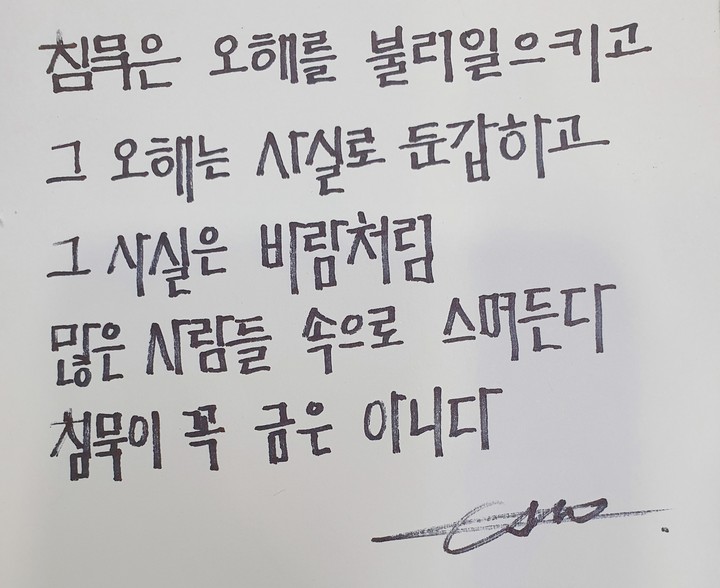 침묵은 오해를 불러일으키고
그 오해는 사실로 둔갑하고
그 사실은 바람처럼
많은 사람들 속으로 스며든다
침묵이 꼭 금은 아니다